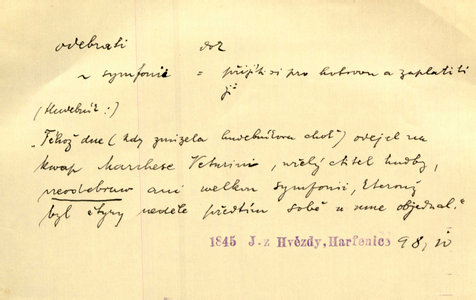 odebrati dok
~ symfonii = přijíti si pro hotovou a zaplatiti
ji
(Hudebník:)
"Téhož dne (kdy zmizela hudebníkova choť) odejel na
kvap Marchese Veturini, vřelý ctitel hudby,
neodebraw ani welkou symfonii, kterouž
byl čtyry neděle předtím sobě u mne objednal."
1845 J. z Hvězdy, Harfenice 98, IV